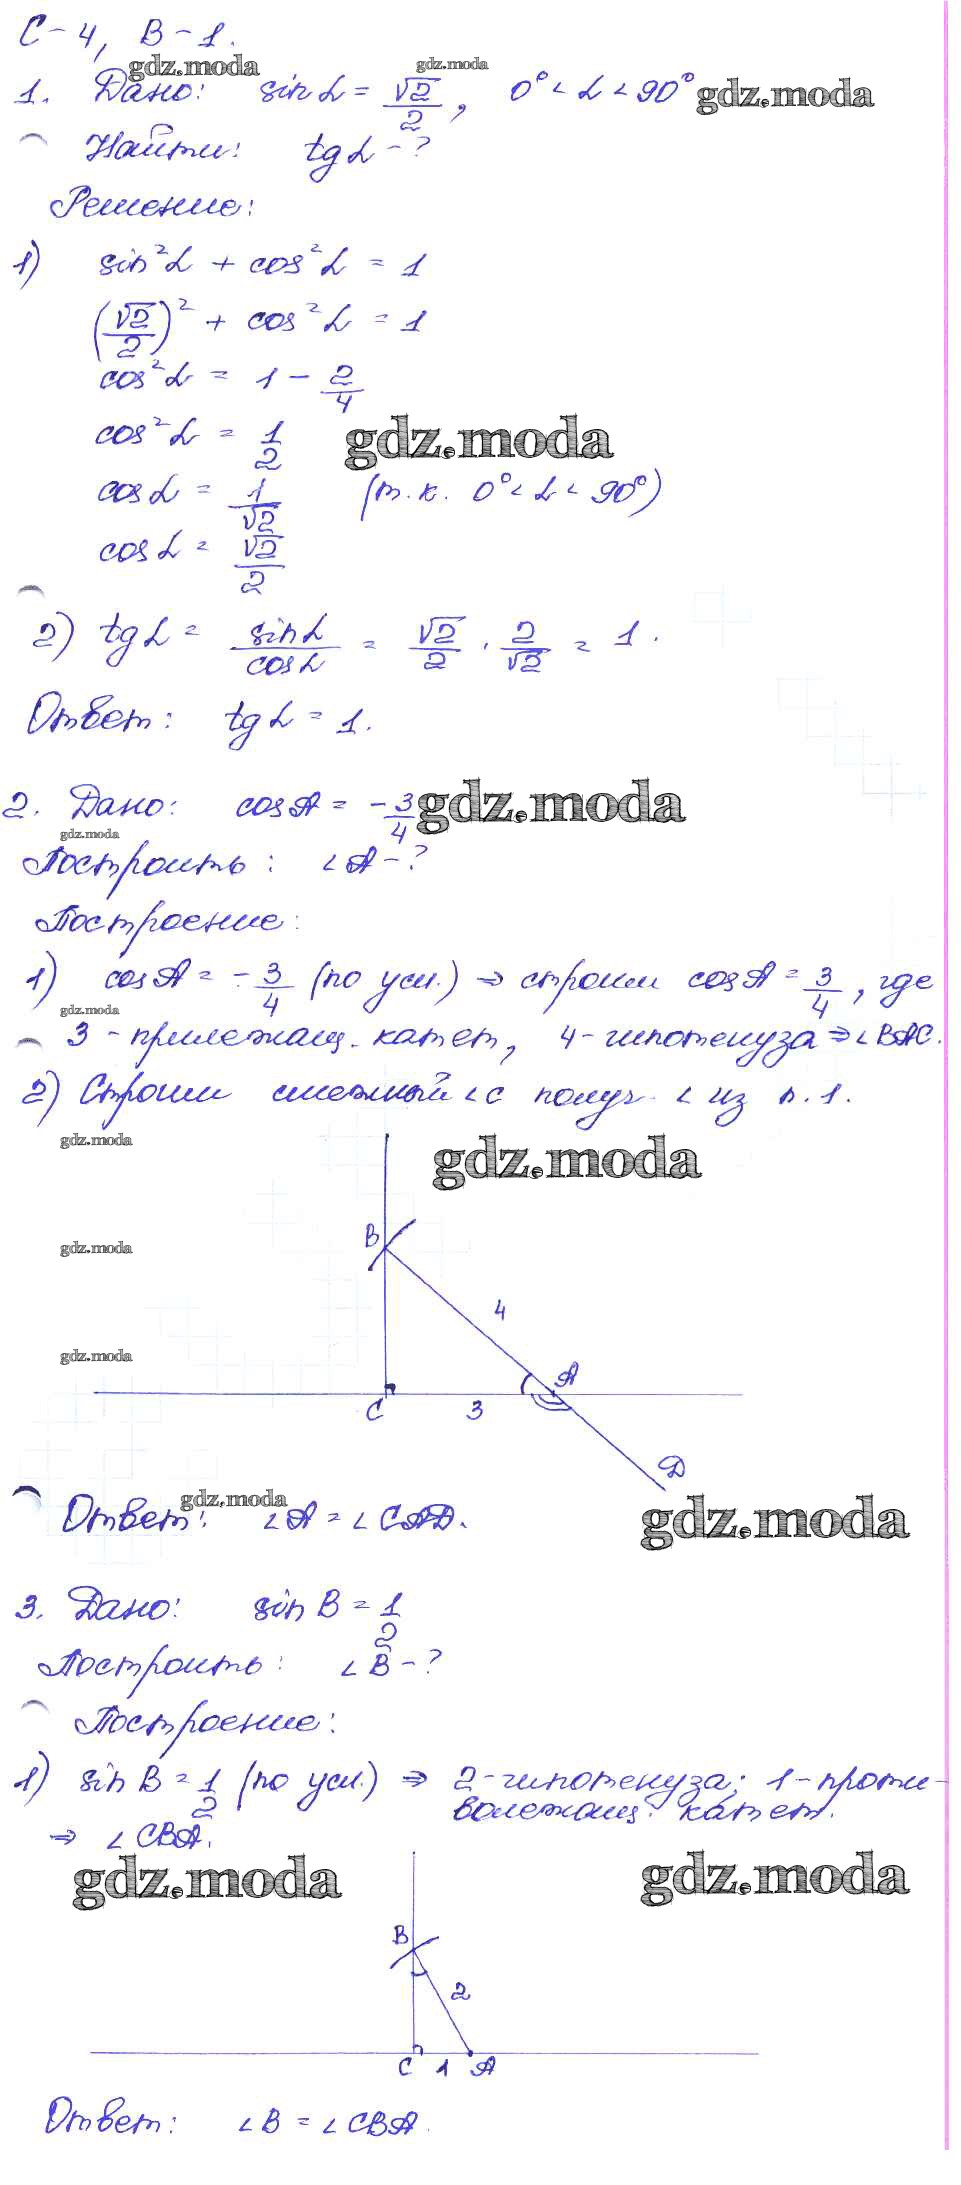 С-4, В-1.
gdz.moda gdz.moda
1. Дано: sin α = √2/2, 0° < α < 90° gdz.moda
Найти: tg α - ?
Решение:
1) sin²α + cos²α = 1
(√2/2)² + cos²α = 1
cos²α = 1 - 2/4
cos²α = 1/2 gdz.moda
cos α = 1/√2 (т.к. 0° < α < 90°)
cos α = √2/2
2) tg α = sin α/cos α = √2/2 · 2/√2 = 1.
Ответ: tg α = 1.
2. Дано: cos A = -3/4 gdz.moda
gdz.moda
Построить: ∠A - ?
Построение:
1) cos A = -3/4 (по усл.) ⇒ строим cos A = 3/4, где
gdz.moda
3 - прилежащ. катет, 4 - гипотенуза ⇒ ∠BAC.
2) Строим смежный ∠ с получ. ∠ из п. 1.
gdz.moda gdz.moda
B
gdz.moda
4
gdz.moda
A
C 3
D
gdz.moda gdz.moda
Ответ: ∠A = ∠CAD.
3. Дано: sin B = 1/2
Построить: ∠B - ?
Построение:
1) sin B = 1/2 (по усл.) ⇒ 2 - гипотенуза; 1 - проти-
волежащ. катет.
⇒ ∠CBA.
gdz.moda gdz.moda
B
2
C 1 A
Ответ: ∠B = ∠CBA.